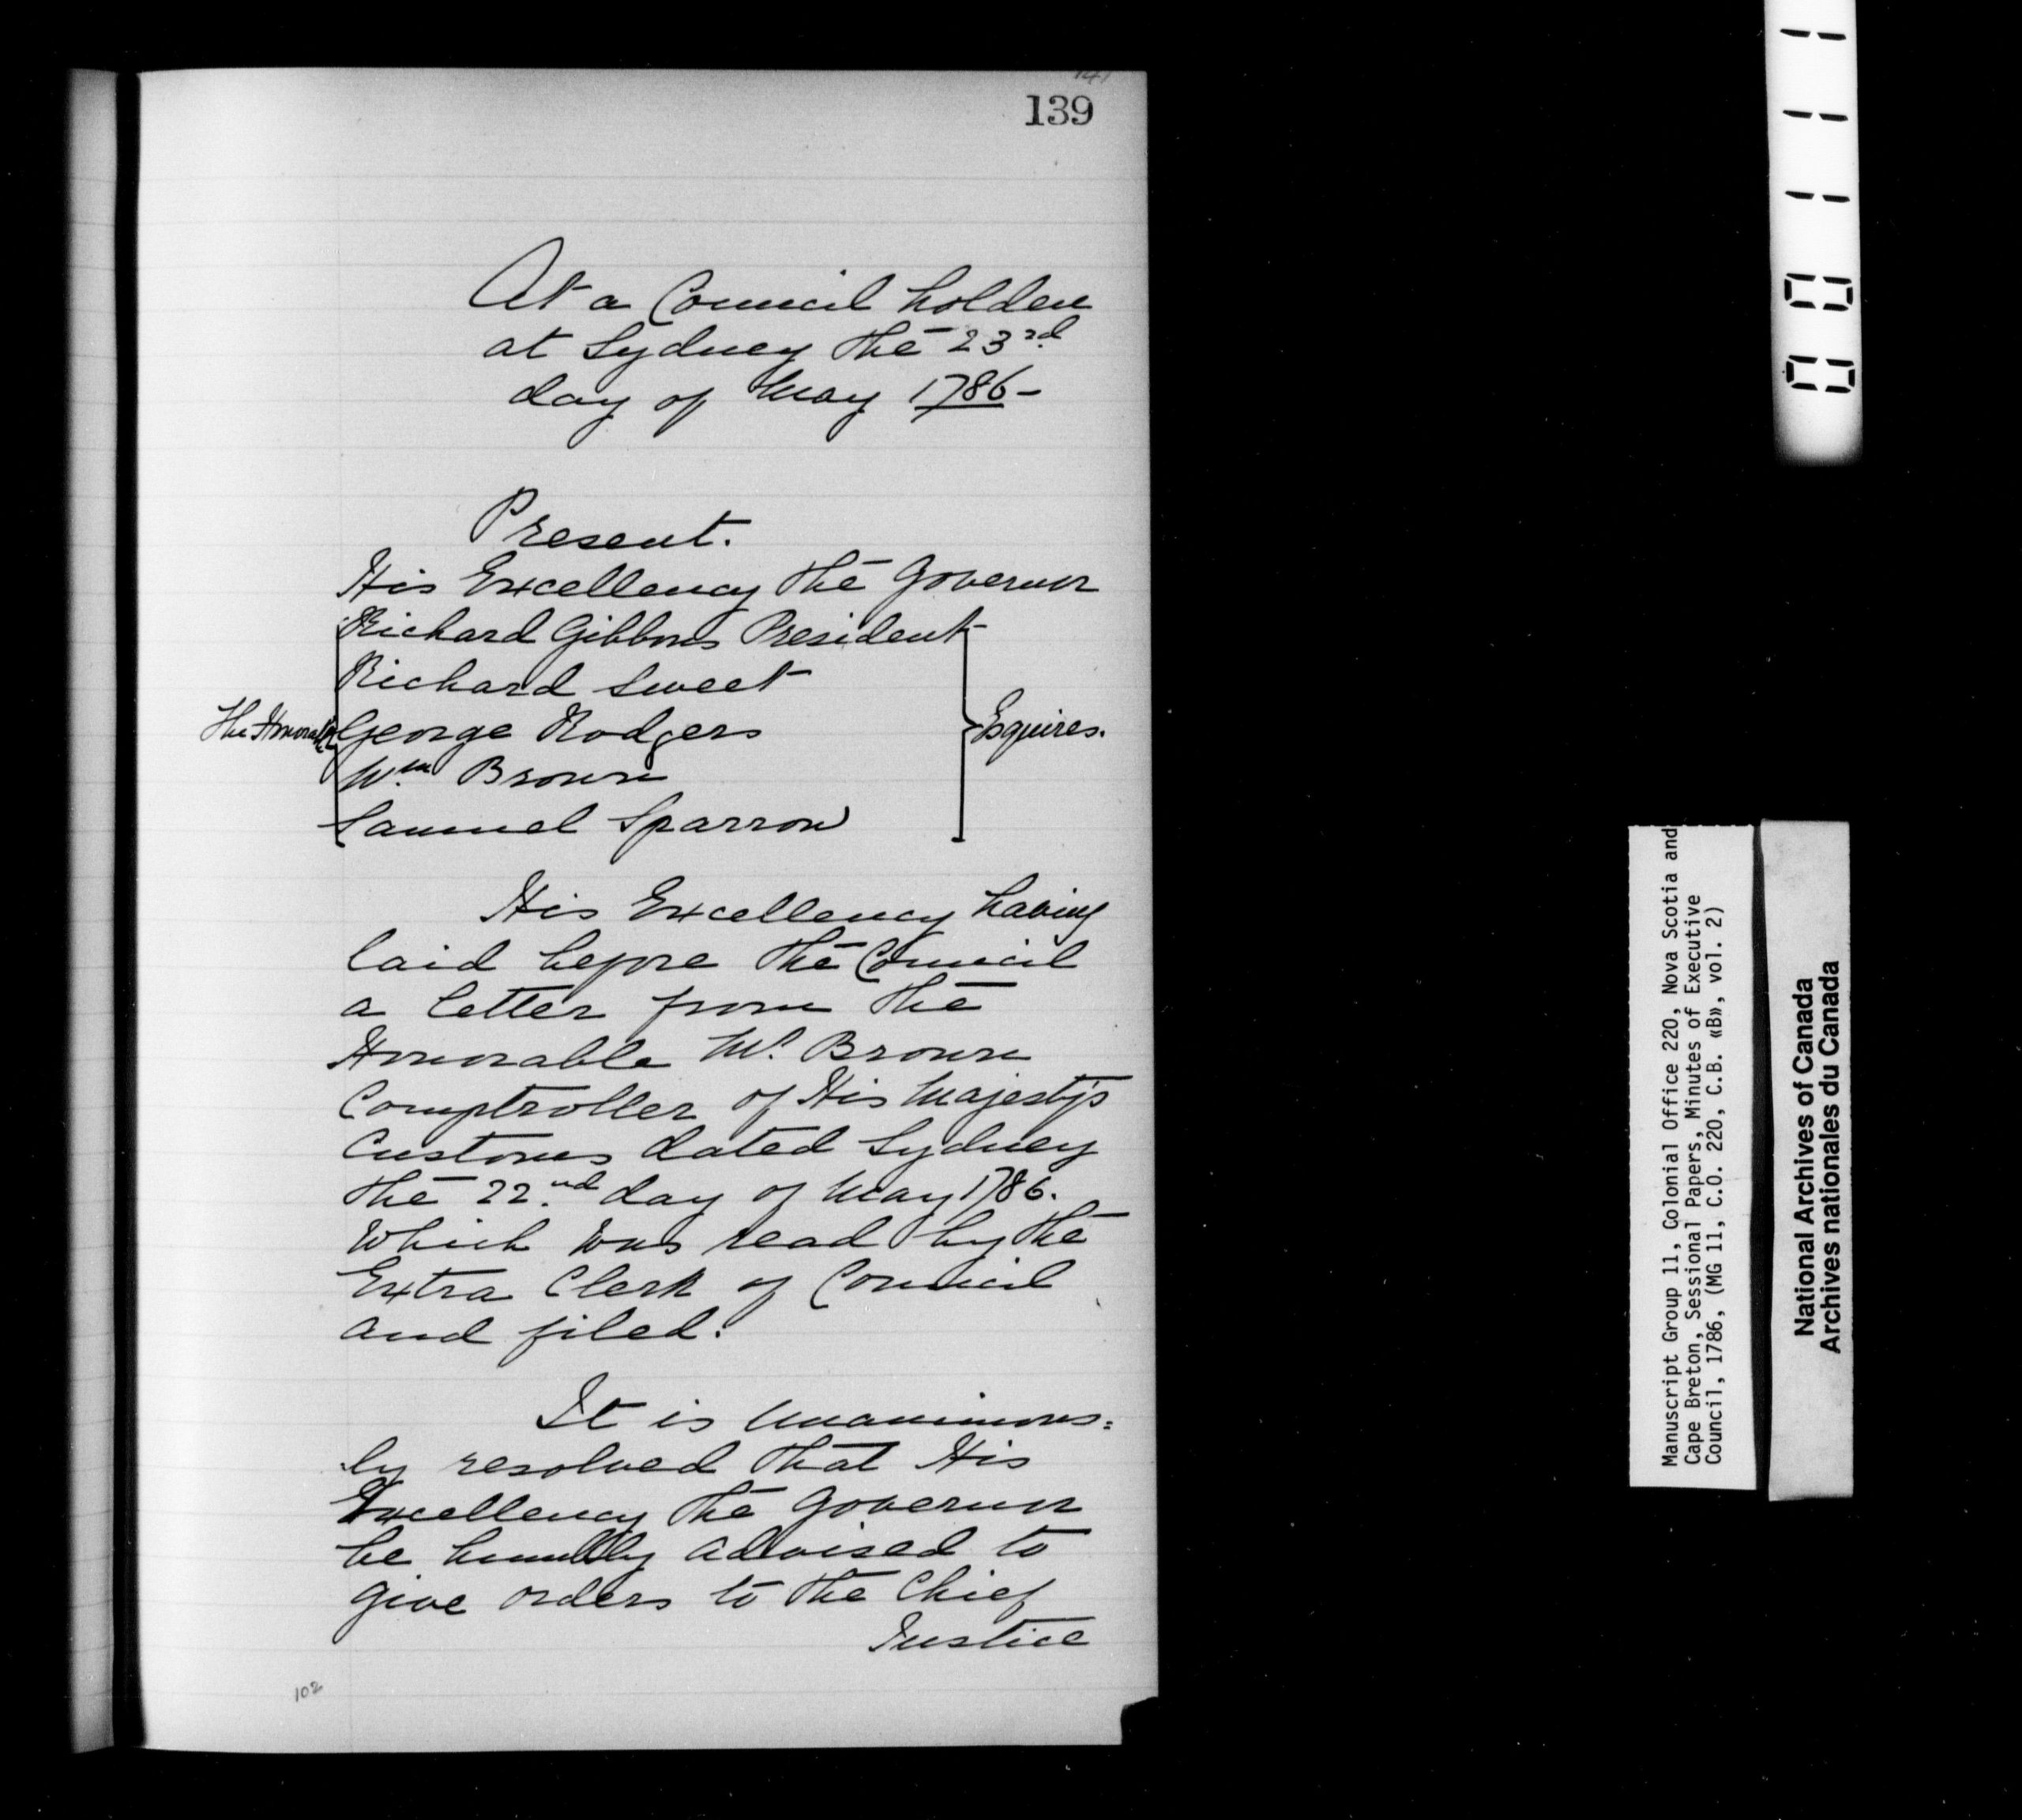 139
At a Council holden
at Sydney the 23rd
day of May 1786-
Present.
His Excellency the Governor
Richard Gibbons President
Richard Sweet
The Honorable George Rodgers Esquires.
Wm Brown
Samuel Sparrow
His Excellency having
laid before the Council
a letter from the
Honorable Mr. Brown
Comptroller of His Majesty's
Customs dated Sydney
the 22nd day of May 1786.
Which was read by the
Extra Clerk of Council
and filed.
It is Unanimous=
ly resolved that His
Excellency the Governor
be humbly advised to
give orders to the Chief
Justice
102
00111
Manuscript Group 11, Colonial Office 220, Nova Scotia and
Cape Breton, Sessional Papers, Minutes of Executive
Council, 1786, (MG 11, C.O. 220, C.B. «B», vol. 2)
National Archives of Canada
Archives nationales du Canada